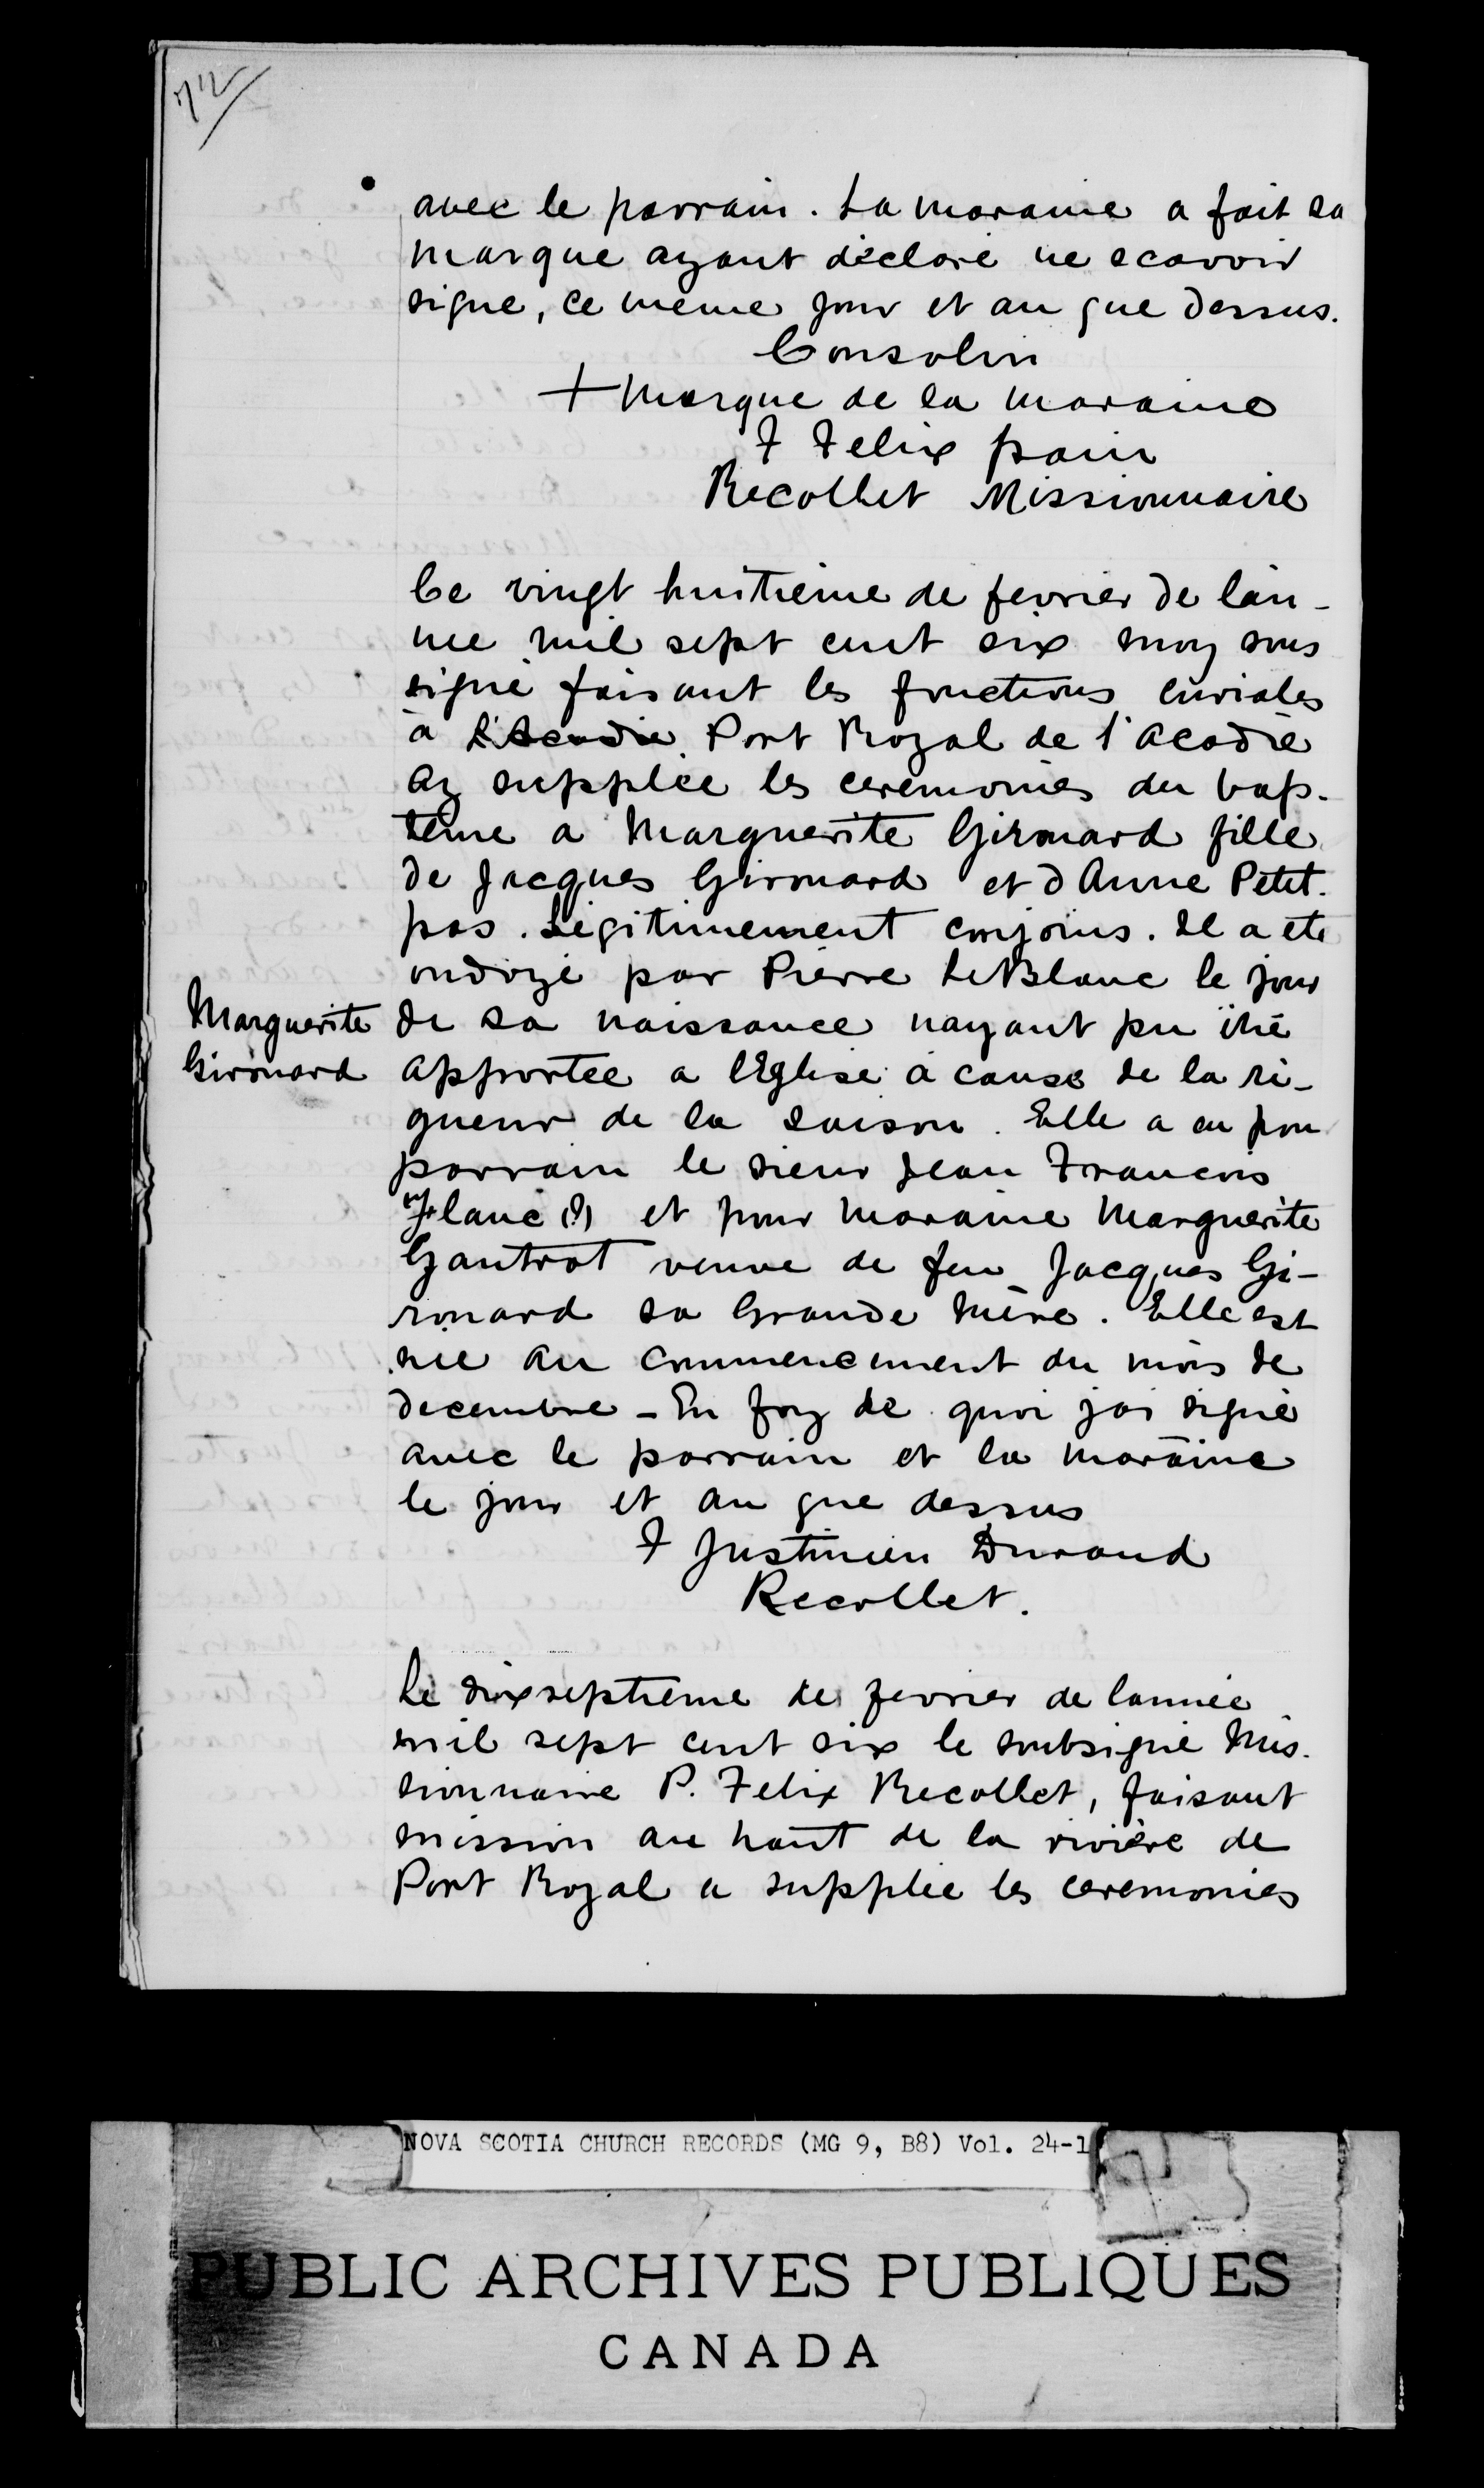 72
avec le parrain. La maraine a fait sa
marque ayant déclaré ne scavoir
signe, ce meme jour et an que dessus.
Consolin
+ Marque de la maraine
F Felix pain
Recollet Missionnaire
Ce vingt huitième de fevrier de lan-
née mil sept cent six moy sous
signé faisant les fonctions curiales
à L'Acadie Port Royal de l'acadie
ay supplée les ceremonies du bap-
teme a Marguerite Girouard fille
de Jacques Girouard et d Anne Petit-
pas. Légitimement conjoins. Il a ete
ondoyé par Pierre LeBlanc le jour
Marguerite
Girouard
de sa naissance nayant pu être
apportée a lEglise à cause de la ri-
gueur de la saison. Elle a eu pour
parrain le sieur Jean Francois
Flanc (?) et pour maraine Marguerite
Gautrot veuve de feu Jacques Gi-
rouard sa Grande Mère. Elle est
née au commencement du mois de
decembre - En foy de quoi jai signé
avec le parrain et la maraine
le jour et an que dessus
F Justinien Durand
Recollet.
Le dixseptieme de fevrier de lannée
mil sept cent six le soubsigné Mis-
sionnaire P. Felix Recollet, faisant
mission au haut de la rivière de
Port Royal a supplée les ceremonies
NOVA SCOTIA CHURCH RECORDS (MG 9, B8) Vol. 24-1
PUBLIC ARCHIVES PUBLIQUES
CANADA